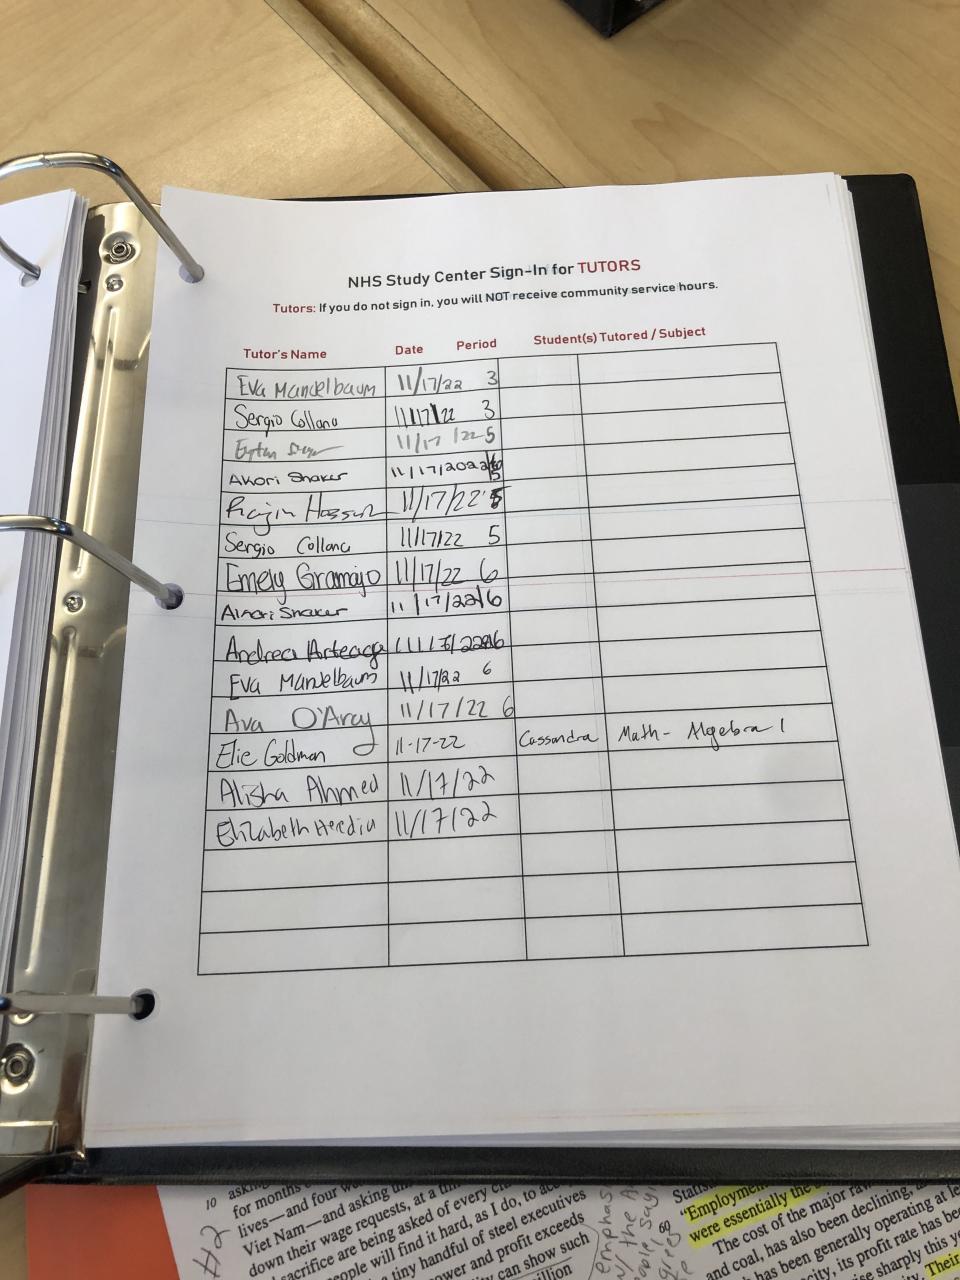 NHS Study Center Sign-In for TUTORS
Tutors: If you do not sign in, you will NOT receive community service hours.
Tutor's Name Date Period Student(s) Tutored / Subject
Eva Mandelbaum 11/17/22 3
Sergio Collana 11/17/22 3
Eytan 11/17/22 5
Akori Shaker 11/17/2022
Hassan 11/17/22 5
Sergio Collana 11/17/22 5
Emely Gramajo 11/17/22 6
Akori Shaker 11/17/22 6
Andrea Arteaga 11/17/22 6
Eva Mandelbaum 11/17/22 6
Ava O'Arcy 11/17/22 6
Elie Goldman 11-17-22 Cassandra Math- Algebra 1
Alisha Ahmed 11/17/22
Elizabeth Heredia 11/17/22
10
for months
lives—and four
Viet Nam—and asking
down their wage requests, at a
sacrifice are being asked of every
people will find it hard, as I do, to
tiny handful of steel executives
power and profit exceeds
can show such
#2
"Employment
were essentially the
The cost of the major raw
and coal, has also been declining,
has been generally operating at
its profit rate has
sharply this
Their